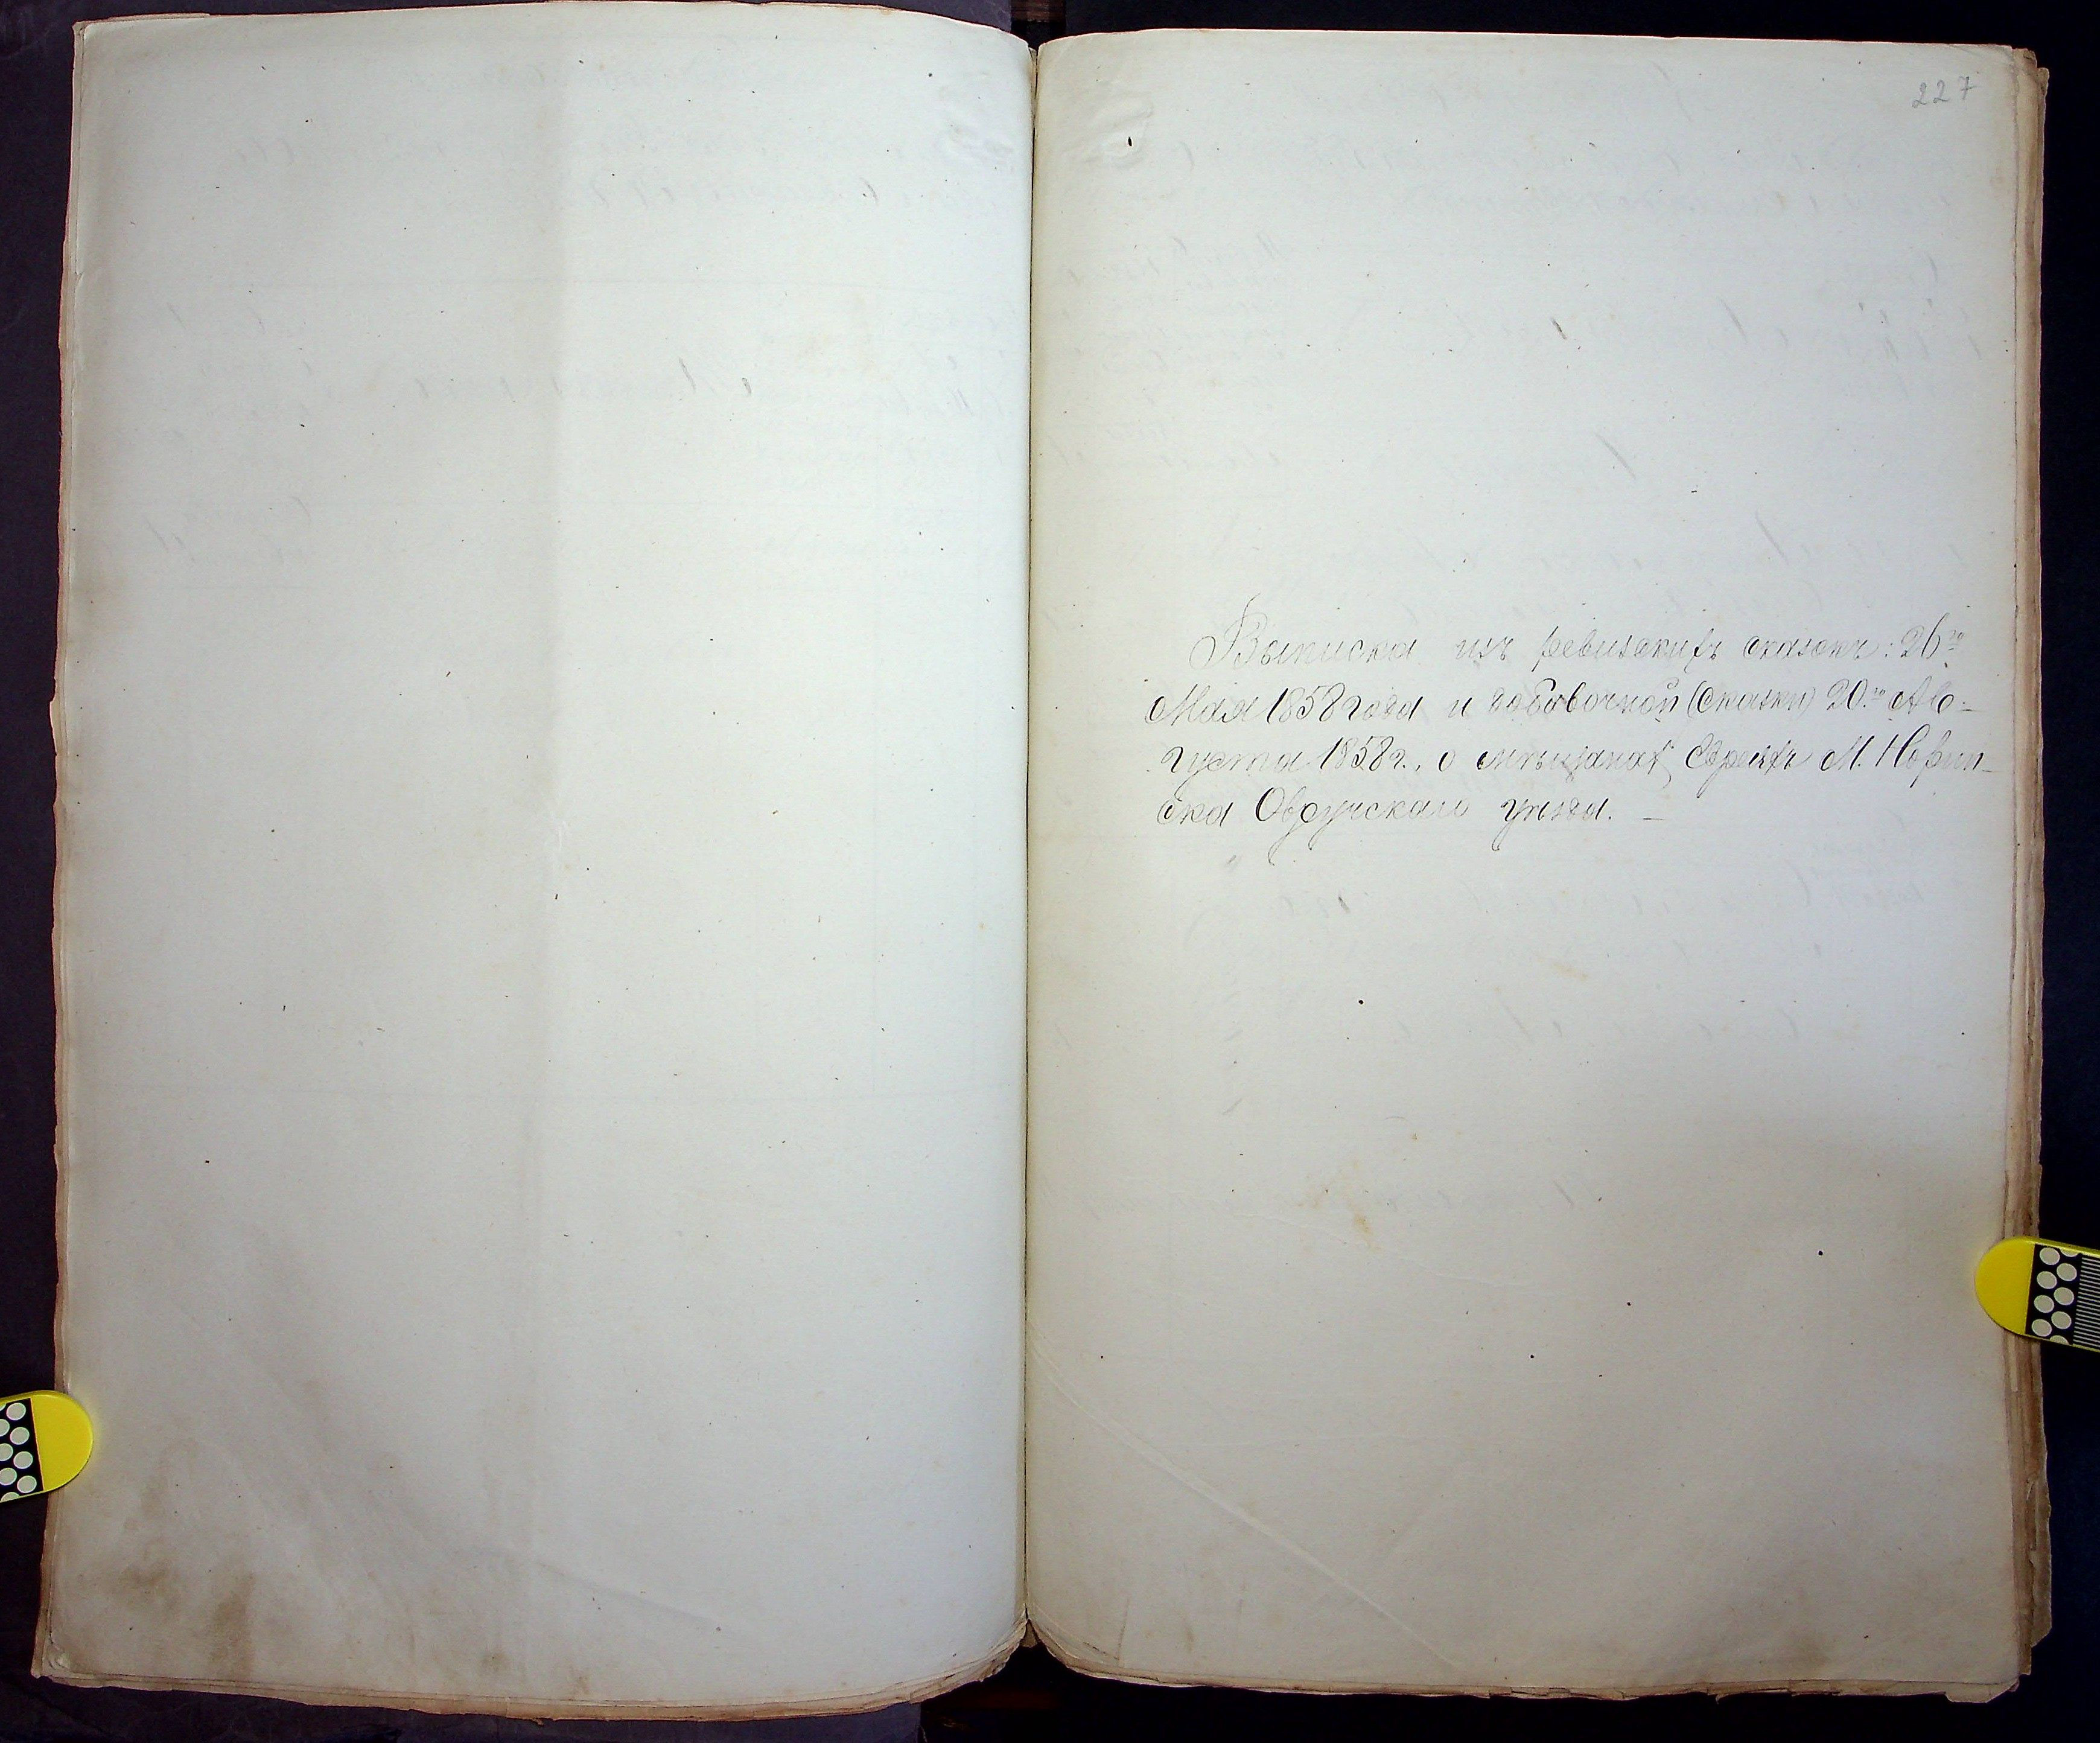 227
Выписка изъ ревизскихъ сказокъ: 26го
Мая 1858 года и добавочной (сказки) 20го Ав-
густа 1858 г., о мѣщанах Евреяхъ М. Норин-
ска Овручскаго уѣзда. —